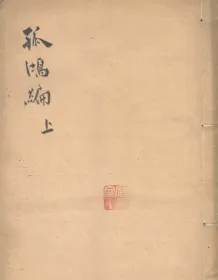 孤鴻編
上